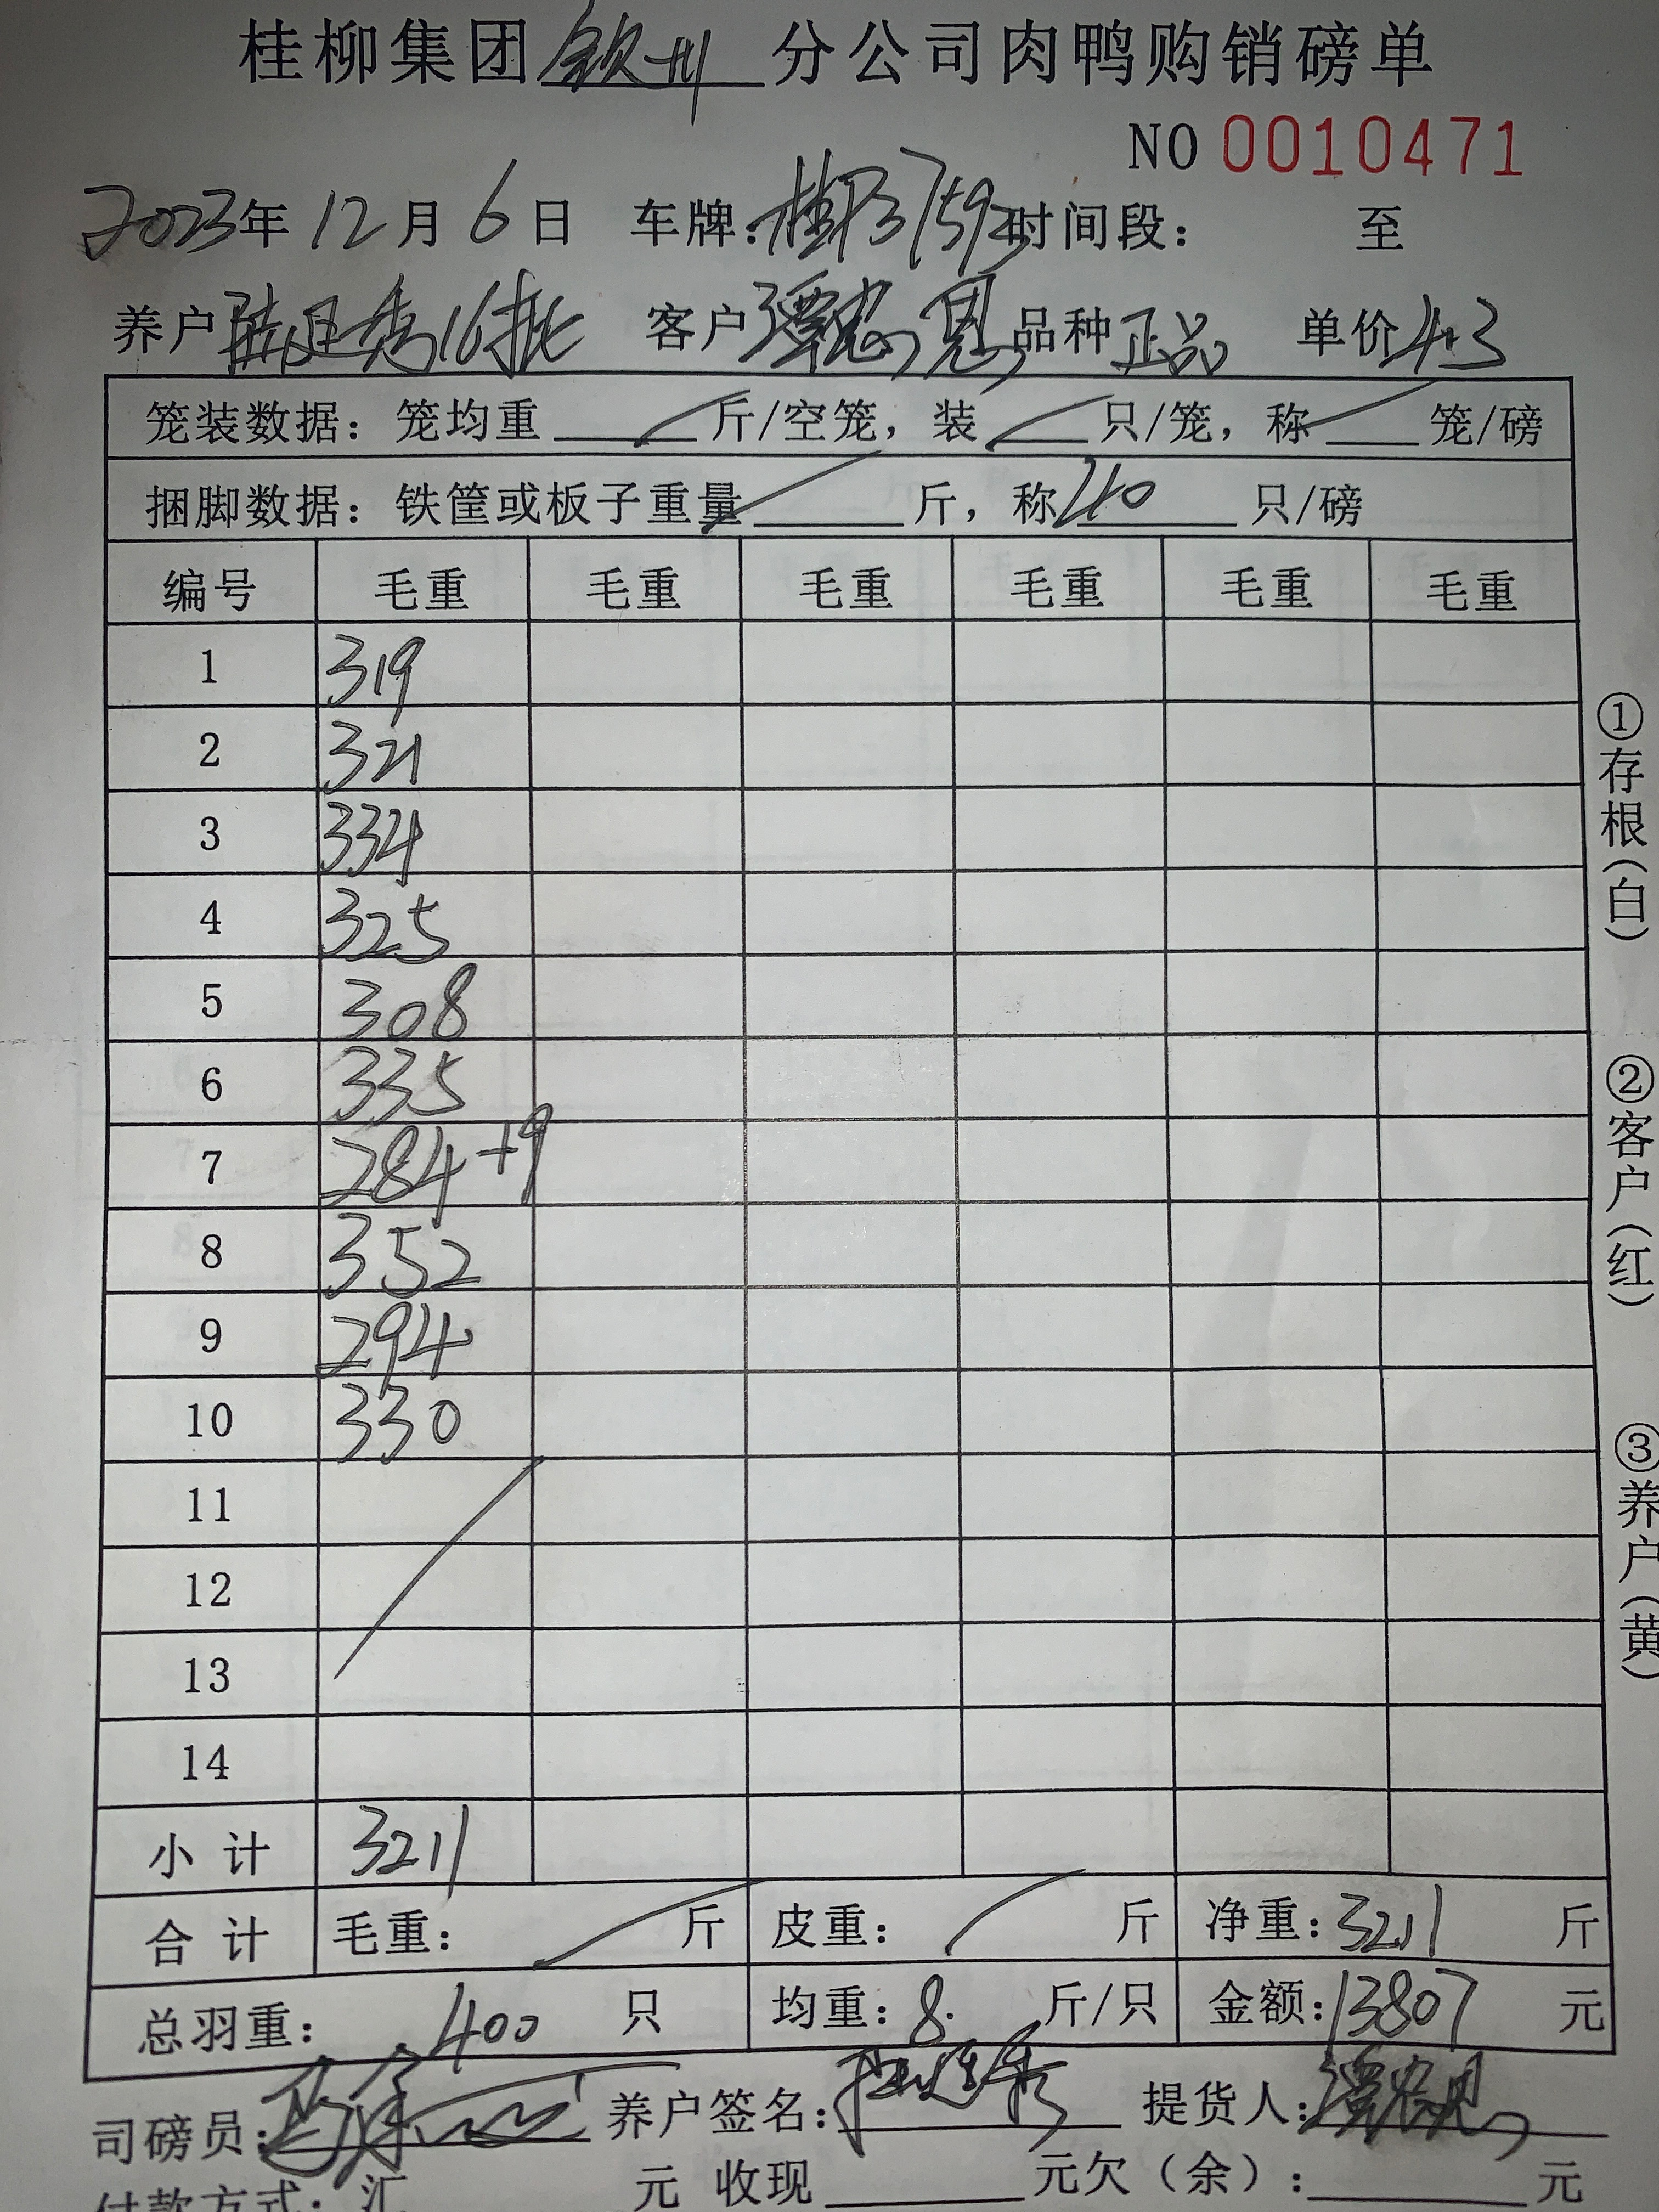 桂柳集团钦州分公司肉鸭购销磅单
NO 0010471
2023年12月6日 车牌: 时间段: 至
养户 16批 客户 谭忠恩 品种 正品 单价 4.3
笼装数据: 笼均重 斤/空笼, 装 只/笼, 称 笼/磅
捆脚数据: 铁筐或板子重量 斤, 称 40 只/磅
编号 毛重 毛重 毛重 毛重 毛重 毛重
1 319
2 321
3 334
4 325
5 308
6 335
7 284+9
8 352
9 294
10 330
11
12
13
14
小计 3211
合计 毛重: 斤 皮重: 斤 净重: 3211 斤
总羽重: 400 只 均重: 8. 斤/只 金额: 13807 元
司磅员: 养户签名: 提货人: 谭忠恩
付款方式: 汇 元 收现 元欠(余): 元
①存根(白)
②客户(红)
③养户(黄)